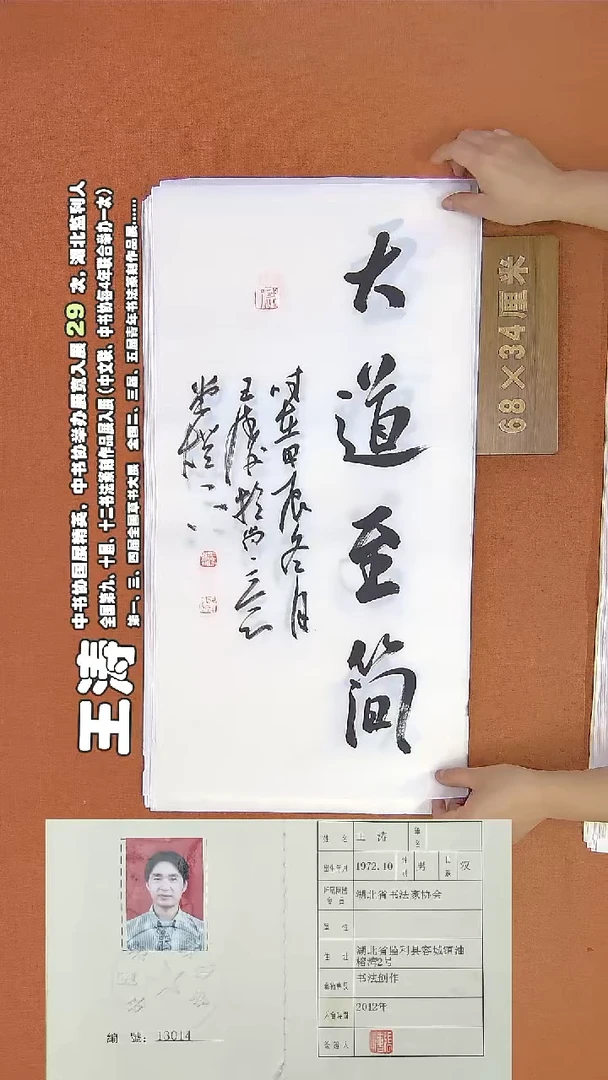 大道至简
时在甲辰冬月
王涛
中书协国展精英，中书协举办展赛入展 29 次，湖北监利人
全国第九、十届、十二书法篆刻作品展入展（中文联、中书协每4年联合举办一次）
第一、三、四届全国草书大展 全国二、三届、五届青年书法篆刻作品展……
68×34厘米
姓 名 王 涛
出生年月 1972.10 性别 男 民族 汉
湖北省书法家协会
住 址 湖北省监利县容城镇油榨湾2号
书法创作
入会时间 2012年
签领人
编 號：13014